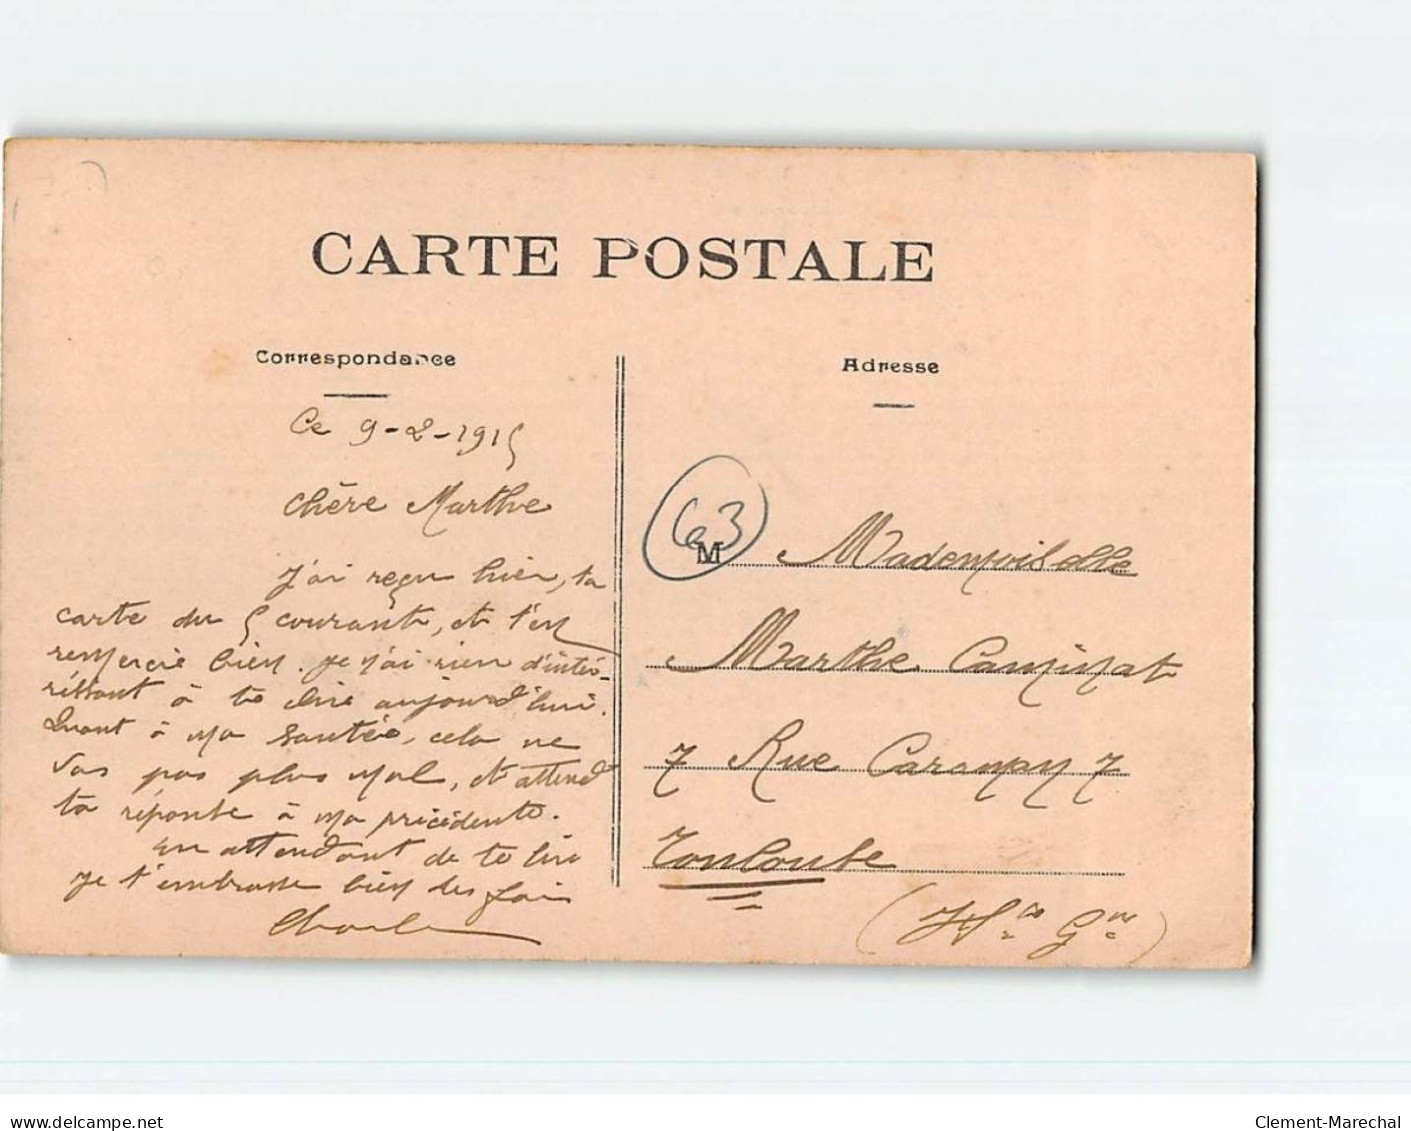 CARTE POSTALE
Correspondance
Adresse
Ce 9-2-1915
chère Marthe
J'ai reçu hier, ta
carte du 5 courant, et t'en
remercie bien. je n'ai rien d'inté-
réssant à te dire aujourd'hui.
Quant à ma santée, cela ne
vas pas plus mal, et attend
ta réponse à ma précédente.
En attendant de te lire
je t'embrasse bien des fois
Charles
63
M Mademoiselle
Marthe Caminat
7 Rue Caraman 7
Toulouse
(Hte Gne)
www.delcampe.net
Clement-Marechal